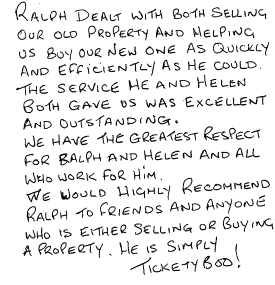 RALPH DEALT WITH BOTH SELLING
OUR OLD PROPERTY AND HELPING
US BUY OUR NEW ONE AS QUICKLY
AND EFFICIENTLY AS HE COULD.
THE SERVICE HE AND HELEN
BOTH GAVE US WAS EXCELLENT
AND OUTSTANDING.
WE HAVE THE GREATEST RESPECT
FOR RALPH AND HELEN AND ALL
WHO WORK FOR HIM.
WE WOULD HIGHLY RECOMMEND
RALPH TO FRIENDS AND ANYONE
WHO IS EITHER SELLING OR BUYING
A PROPERTY. HE IS SIMPLY
TICKETYBOO!